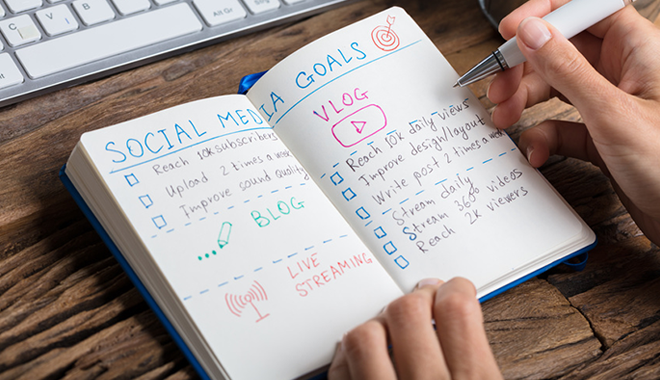 C V B
SOCIAL MEDIA GOALS
Reach 10k subscribers
Upload 2 times a week
Improve sound quality
BLOG
LIVE
STREAMING
VLOG
Reach 10k daily views
Improve design/layout
Write post 2 times a week
Stream daily
Stream 360° videos
Reach 2k viewers